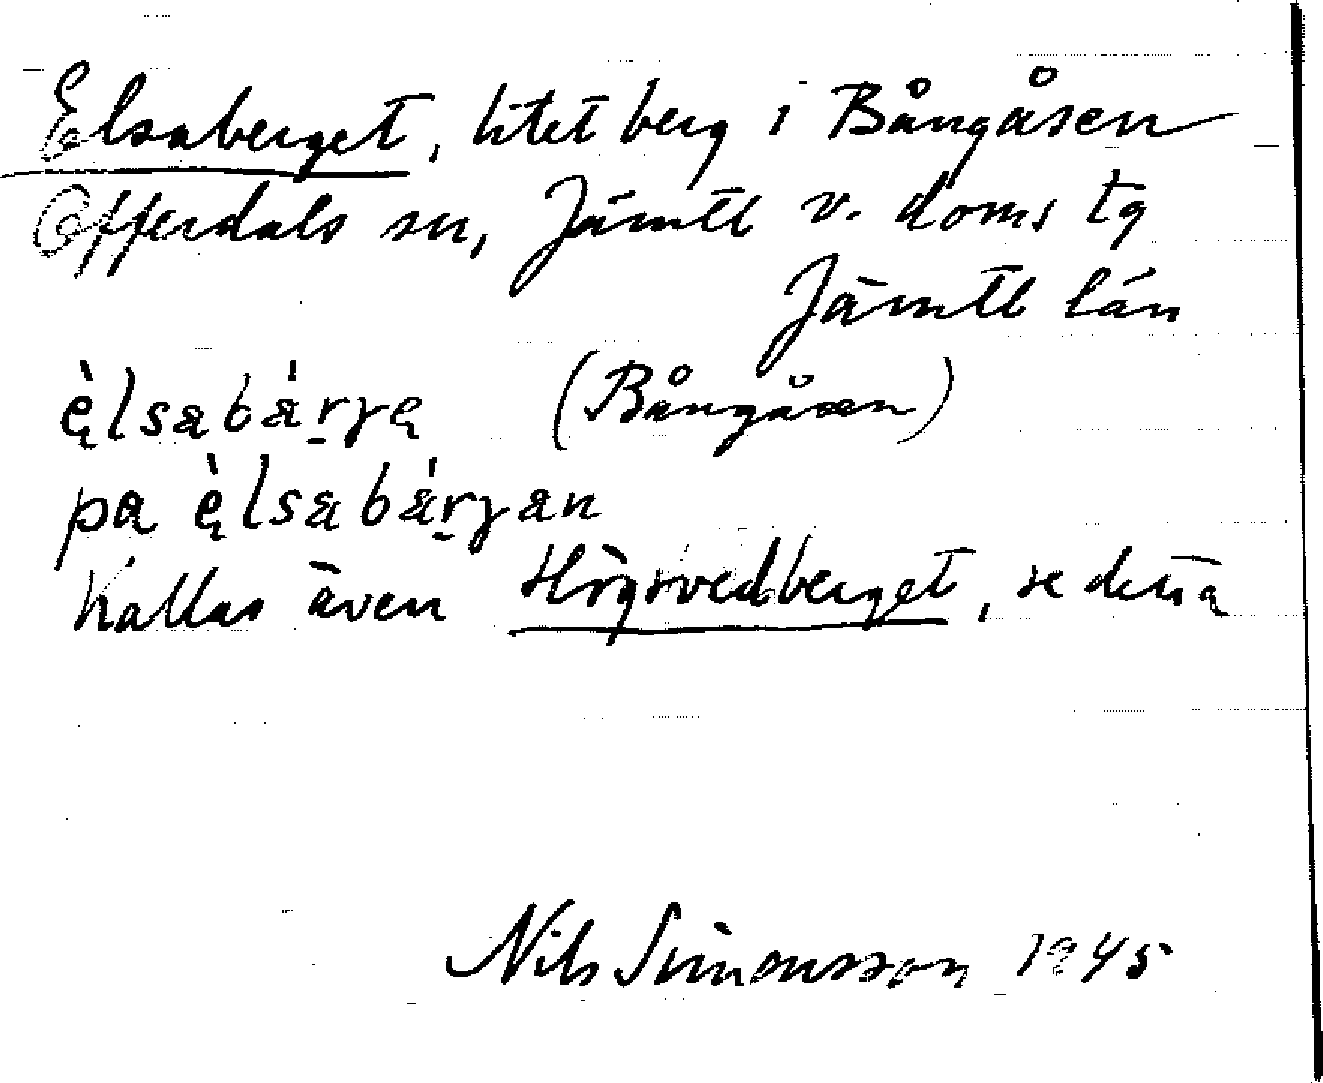 Elsaberget, litet berg i Bångåsen
Offerdals sn, Jämtl v. doms tg
Jämtl län
ę̀lsabárγę (Bångåsen)
pa ę̀lsabárγan
Kallas även Högsvedberget, se detta
Nils Simonsson 1945